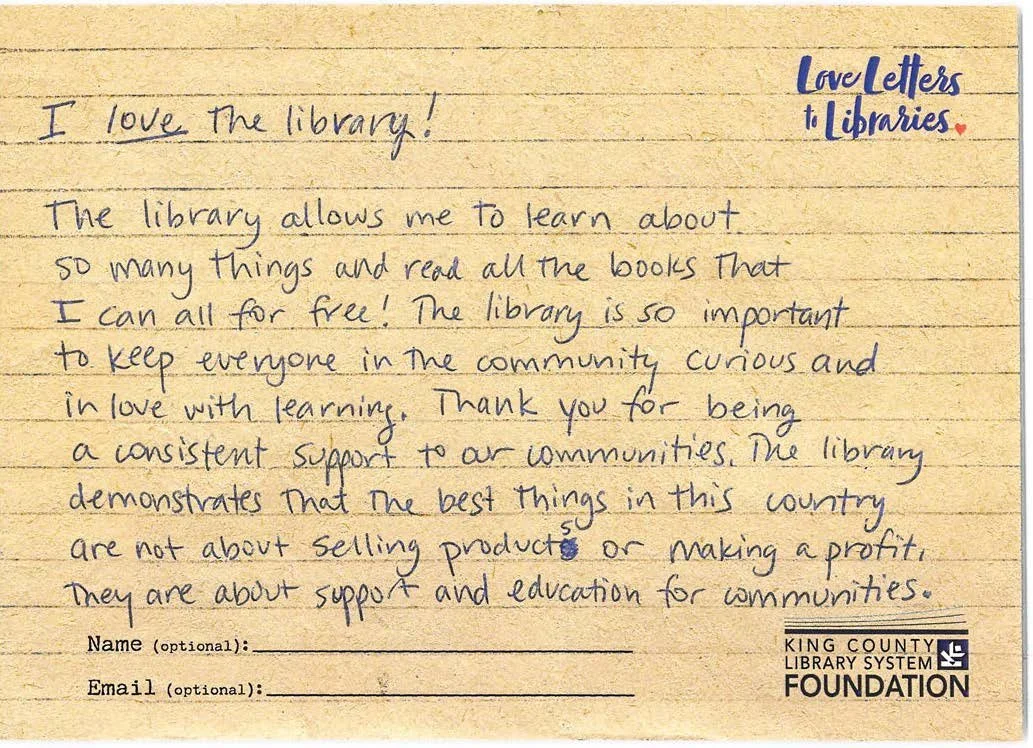 Love Letters
to Libraries
I love the library!
The library allows me to learn about
so many things and read all the books that
I can all for free! The library is so important
to keep everyone in the community curious and
in love with learning. Thank you for being
a consistent support to our communities. The library
demonstrates that the best things in this country
are not about selling products or making a profit,
they are about support and education for communities.
Name (optional):
Email (optional):
KING COUNTY
LIBRARY SYSTEM
FOUNDATION